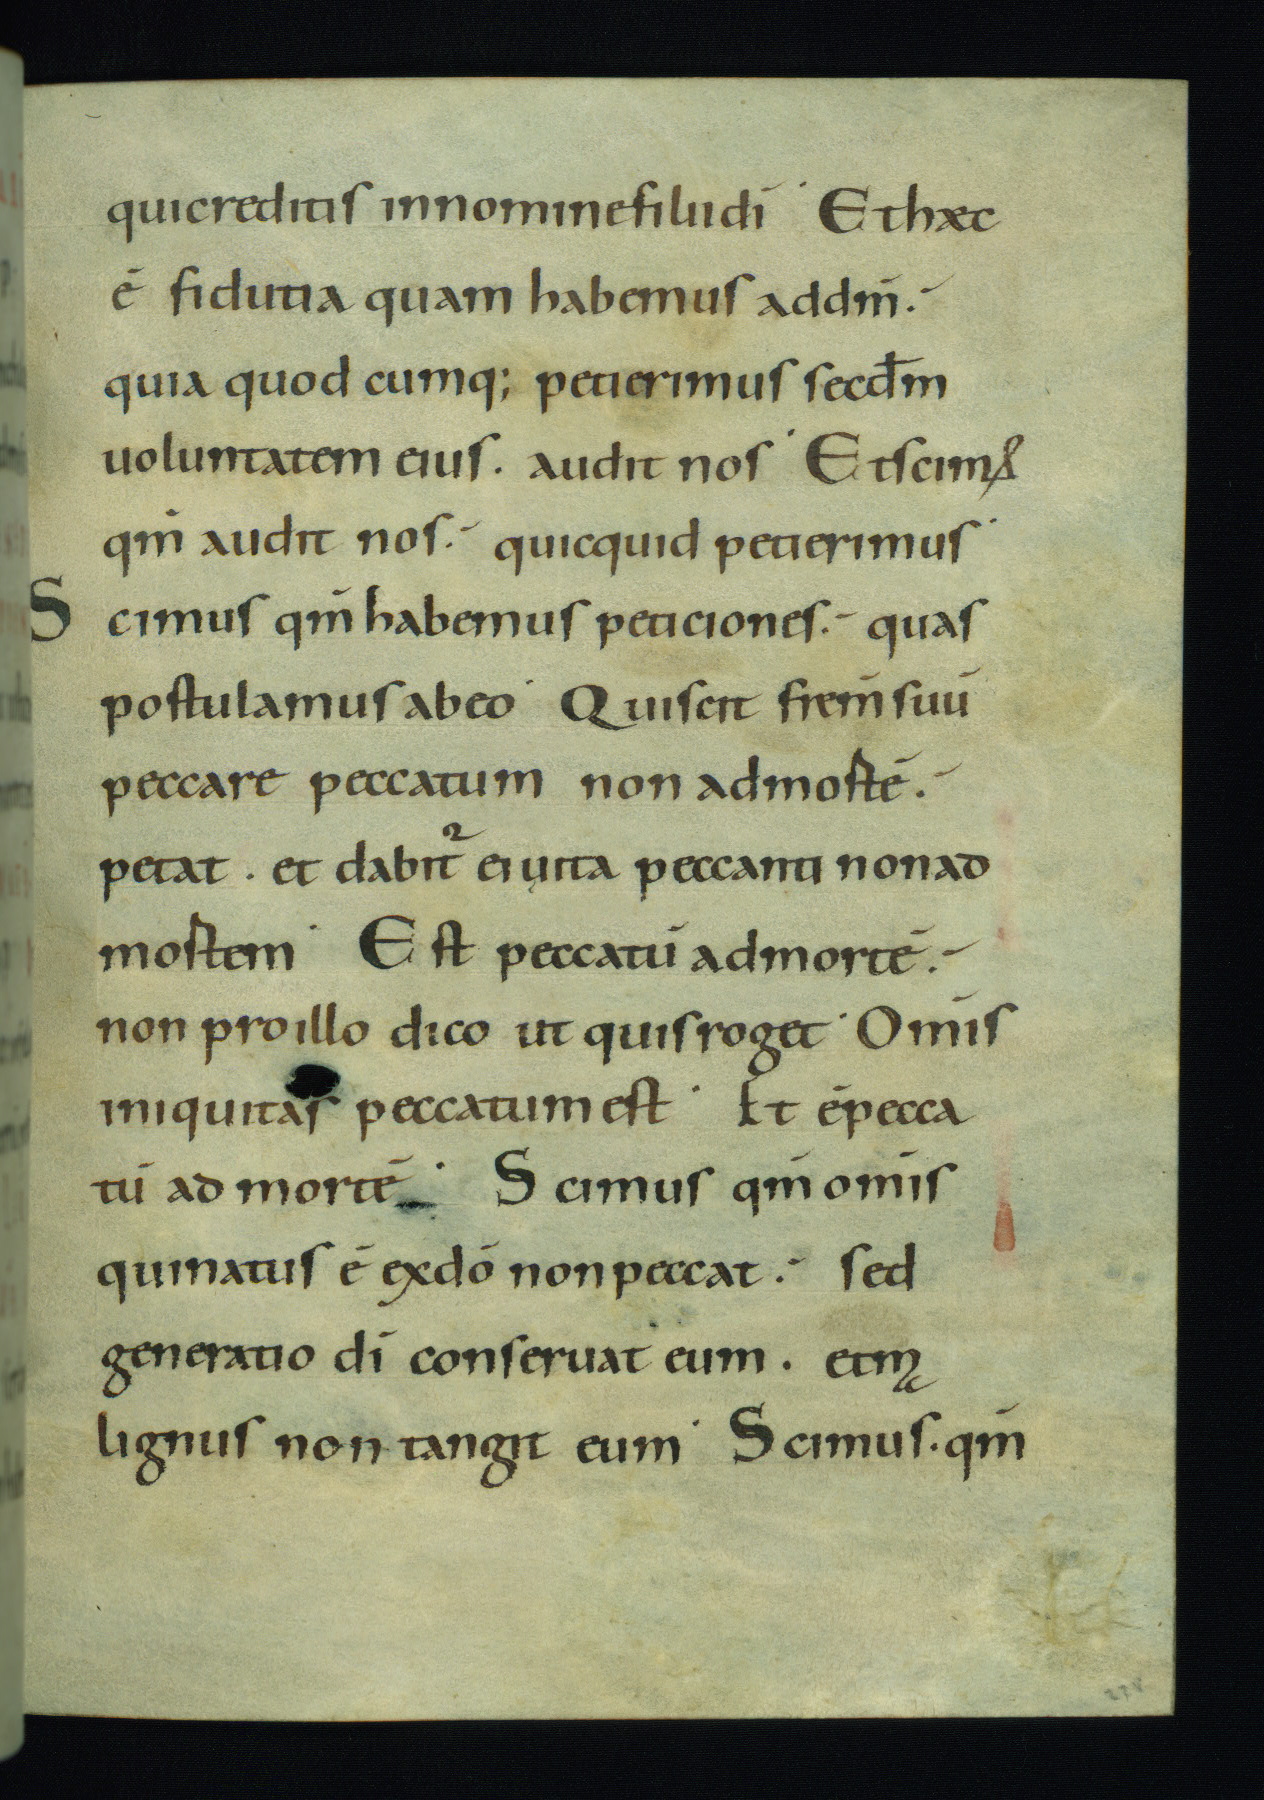 quicreditis innominefilii dī · Ethæc
ē fidutia quam habemus addm̄.
quia quod cumq; petierimus secdm̄
uoluntatem eius. audit nos · Etscimꝰ
qm̄ audit nos. quicquid petierimus ·
Scimus qm̄ habemus peticiones. quas
postulamus abeo · Quiscit frem̄ suū
peccare peccatum non admortē.
petat. et dabit᷑ ei uita peccanti nonad
mortem · Est peccatū admortē.
non proillo dico ut quisroget · Om̄is
iniquitas peccatumest · Et ēpecca
tū ad mortē · Scimus qm̄ om̄is
quinatus ē exdō nonpeccat. sed
generatio dī conseruat eum. etma
lignus non tangit eum · Scimus. qm̄